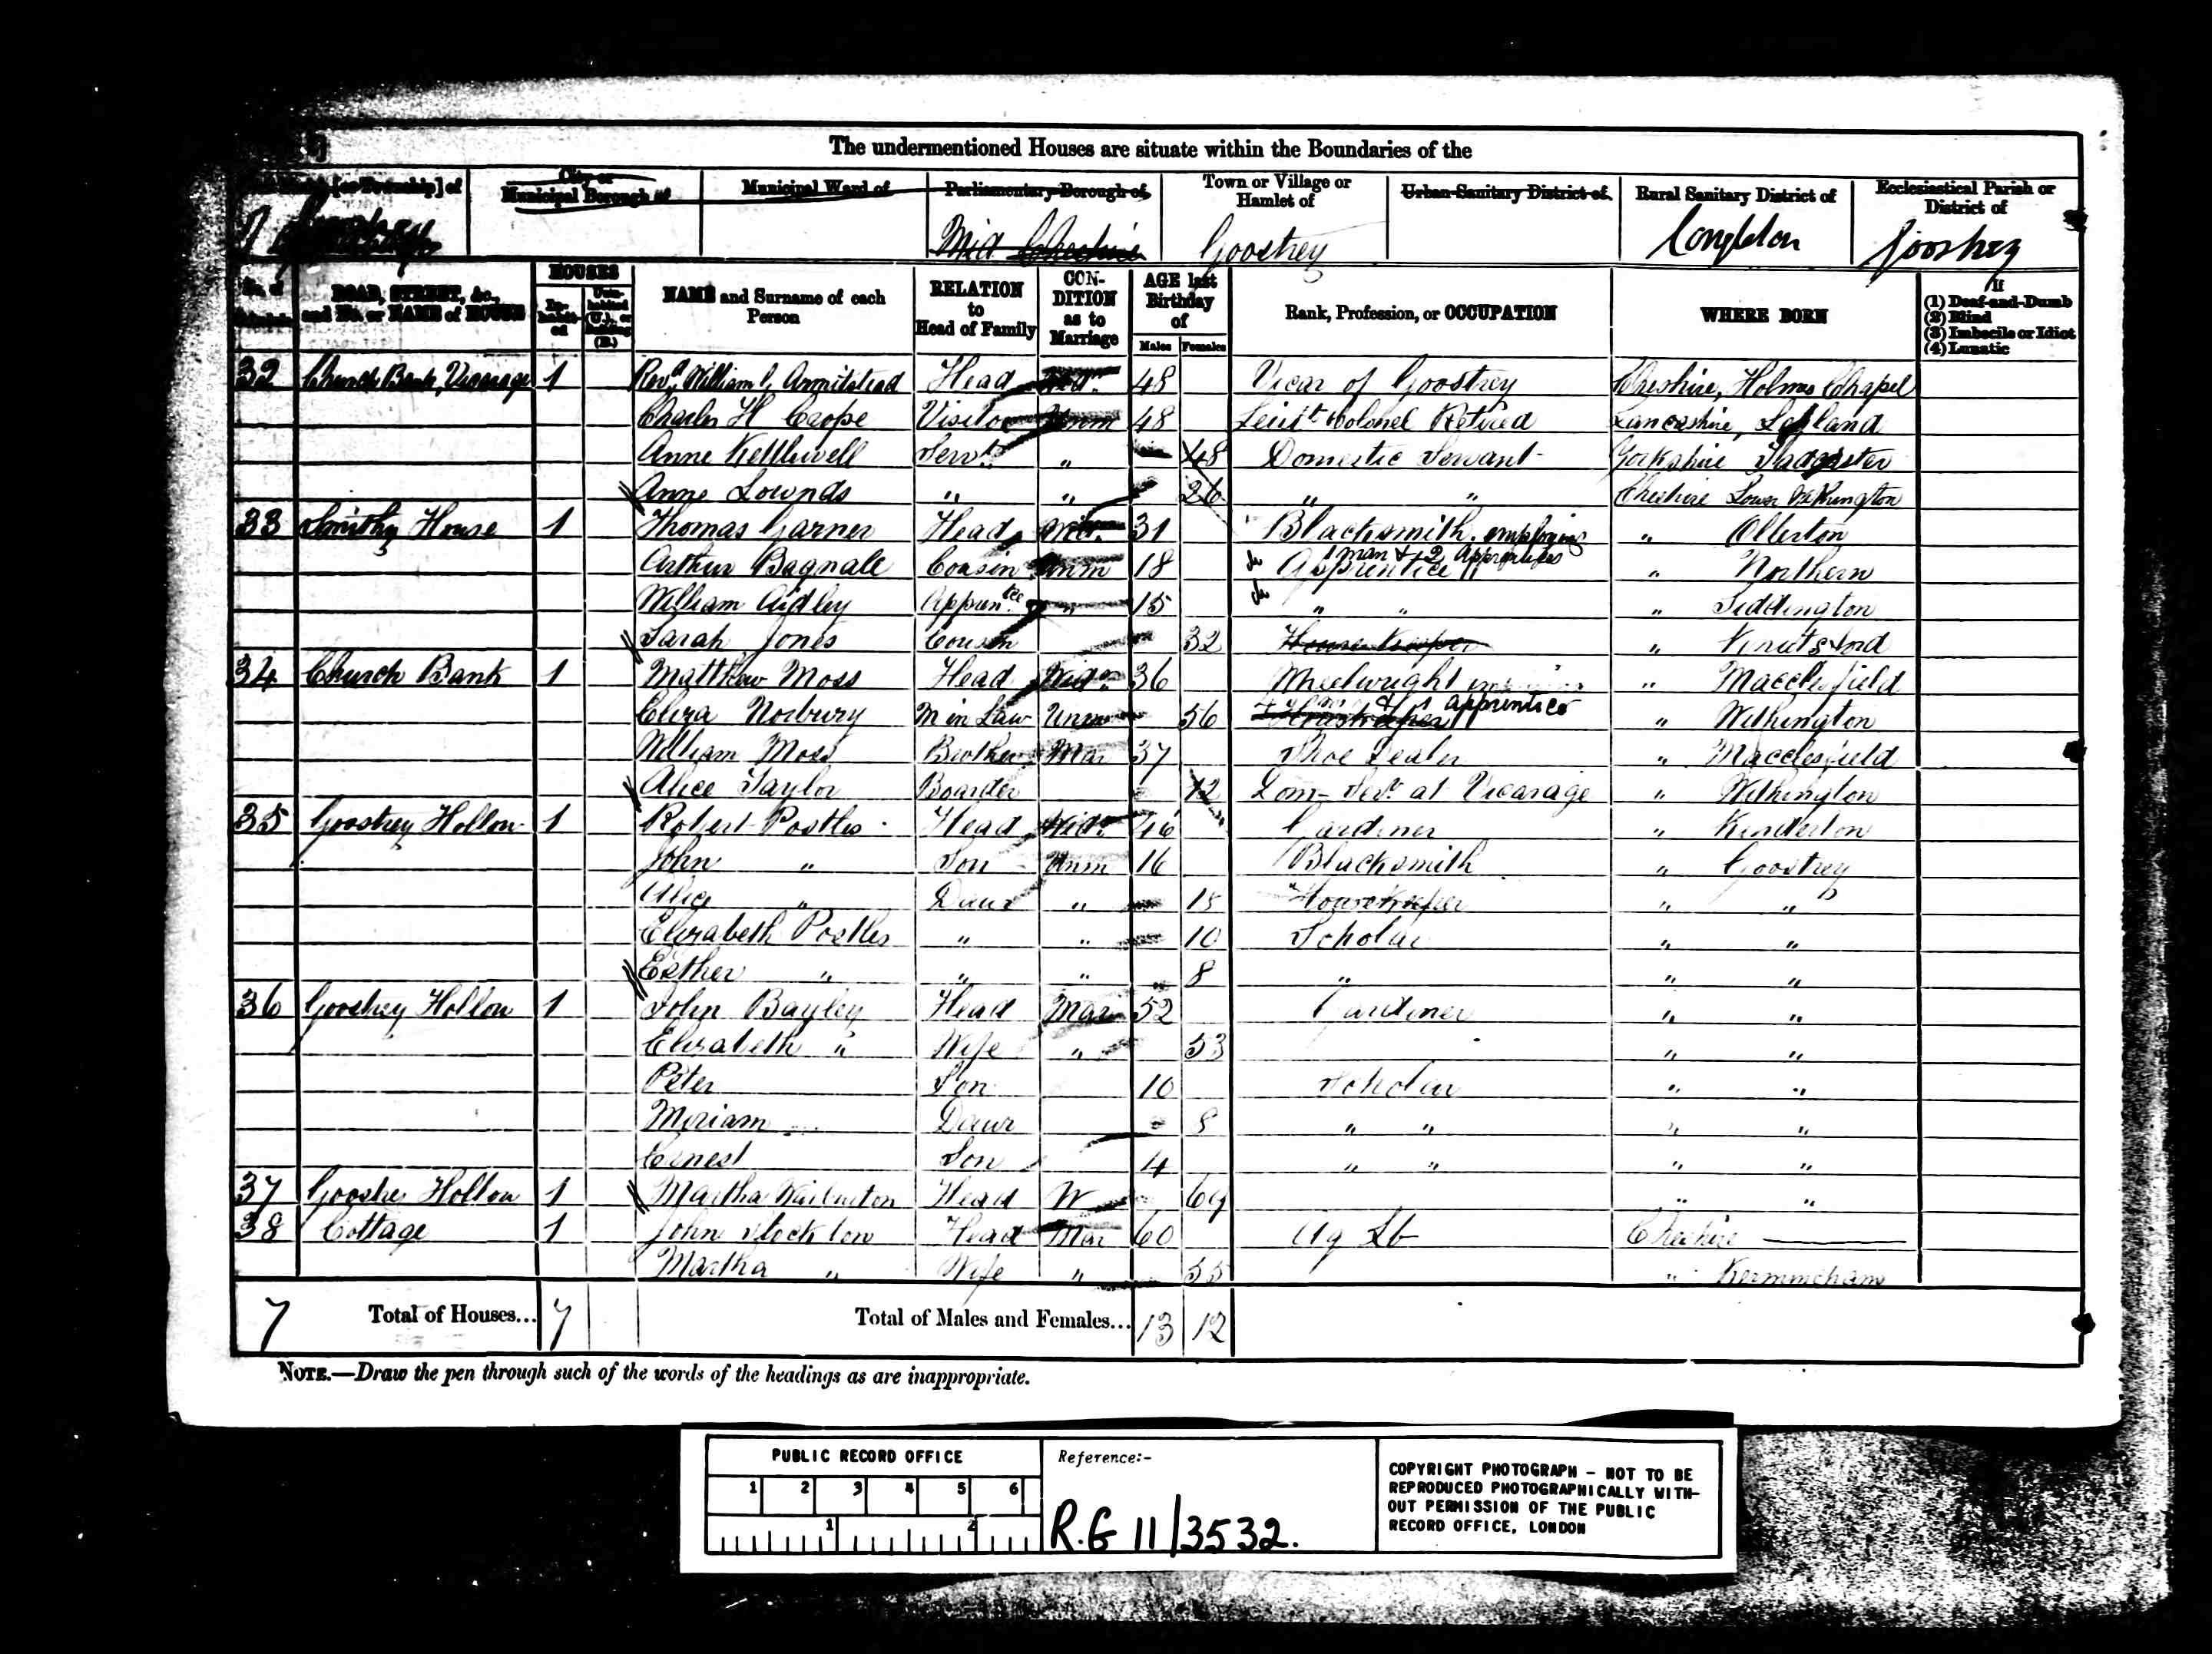 The undermentioned Houses are situate within the Boundaries of the
[or Township] of
City or Municipal Borough of
Municipal Ward of
Parliamentary Borough of
Town or Village or Hamlet of
Urban Sanitary District of
Rural Sanitary District of
Ecclesiastical Parish or District of
Mid Cheshire Goostrey Congleton Goostrey
No. of Schedule
ROAD, STREET, &c., and No. or NAME of HOUSE
HOUSES
Inhabited
Uninhabited (U.), or Building (B.)
NAME and Surname of each Person
RELATION to Head of Family
CONDITION as to Marriage
AGE last Birthday of
Males Females
Rank, Profession, or OCCUPATION
WHERE BORN
If
(1) Deaf-and-Dumb
(2) Blind
(3) Imbecile or Idiot
(4) Lunatic
32 Church Bank, Vicarage 1 Revd. William G Armitstead Head 48 Vicar of Goostrey Cheshire, Holmes Chapel
Charles H Crope Visitor Unm 48 Leiut Colonel Retired Lancashire, Leyland
Anne Kettlewell Servt " 48 Domestic Servant Yorkshire Tadcaster
Anne Lownds " " 26 " " Cheshire Lower Withington
33 Smithy House 1 Thomas Garner Head 31 Blacksmith, employing " Ollerton
1 man & 2 Apprentices
Arthur Bagnale Cousin Unm 18 Apprentice " Northern
William Aidley Apprentce " 15 " " " Siddington
Sarah Jones Cousin 32 House Keeper " Knutsford
34 Church Bank 1 Matthew Moss Head Widr 36 Wheelwright " Macclesfield
& 1 apprentice
Eliza Norbury M in Law Unm 56 Housekeeper " Withington
William Moss Brother Mar 37 Shoe Dealer " Macclesfield
Alice Taylor Boarder 12 Dom- Servt at Vicarage " Withington
35 Goostrey Hollow 1 Robert Postles Head Widr 46 Gardiner " Kinderton
John " Son Unm 16 Blacksmith " Goostrey
Alice " Daur " 15 Housekeeper " "
Elizabeth Postles " " 10 Scholar " "
Esther " " " 8 " " "
36 Goostrey Hollow 1 John Bayley Head Mar 52 Gardiner " "
Elizabeth " Wife " 53 " "
Peter Son 10 Scholar " "
Miriam Daur 8 " " " "
Ernest Son 4 " " " "
37 Goostre Hollow 1 Martha Warburton Head W 69 " "
38 Cottage 1 John Stockton Head Mar 60 Ag Lb Cheshire
Martha " Wife " 55 " Kermincham
7 Total of Houses... 7 Total of Males and Females... 13 12
NOTE.—Draw the pen through such of the words of the headings as are inappropriate.
PUBLIC RECORD OFFICE
1 2 3 4 5 6
1 2
Reference:-
R.G 11/3532.
COPYRIGHT PHOTOGRAPH - NOT TO BE
REPRODUCED PHOTOGRAPHICALLY WITH-
OUT PERMISSION OF THE PUBLIC
RECORD OFFICE, LONDON